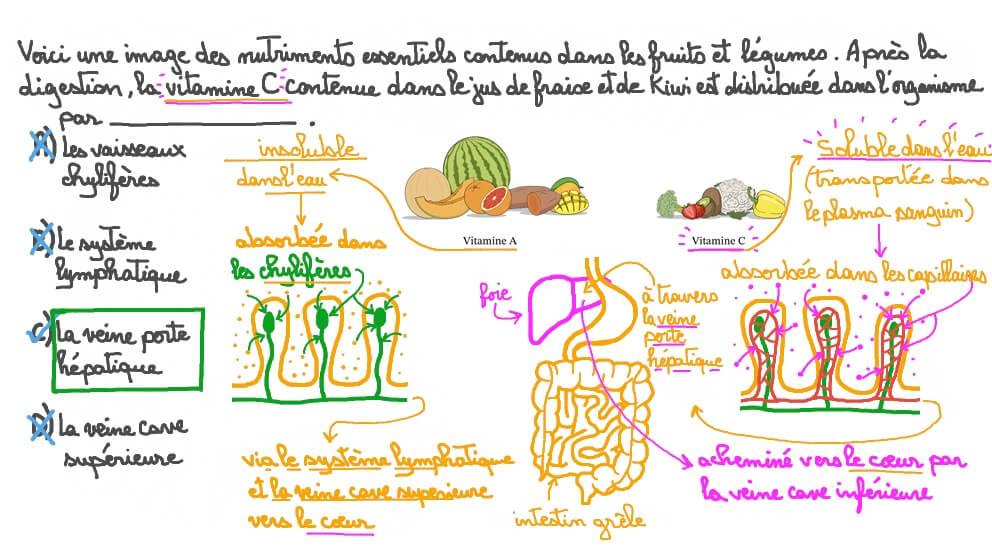 Voici une image des nutriments essentiels contenus dans les fruits et légumes. Après la
digestion, la vitamine C contenue dans le jus de fraise et de Kiwi est distribuée dans l'organisme
par ____________.
A) les vaisseaux
chylifères
B) le système
lymphatique
C) la veine porte
hépatique
D) la veine cave
supérieure
insoluble
dans l'eau
absorbée dans
les chylifères
via le système lymphatique
et la veine cave supérieure
vers le cœur
Vitamine A
Vitamine C
foie
à travers
la veine
porte
hépatique
intestin grêle
Soluble dans l'eau
(transportée dans
le plasma sanguin)
absorbée dans les capillaires
acheminé vers le cœur par
la veine cave inférieure